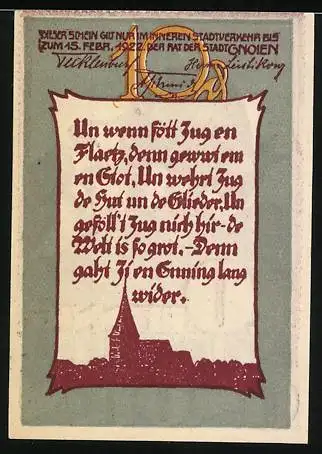 DIESER SCHEIN GILT NUR IM INNEREN STADTVERKEHR BIS
ZUM 15. FEBR. 1922. DER RAT DER STADT GNOIEN
10
Un wenn fött Jug en
Flaetz, denn gewwt em
en Stot. Un wehrt Jug
de Hut un de Glieder. Un
geföll't Jug nich hir - de
Welt is so grot. - Denn
gaht Ji en Enning lang
wider.